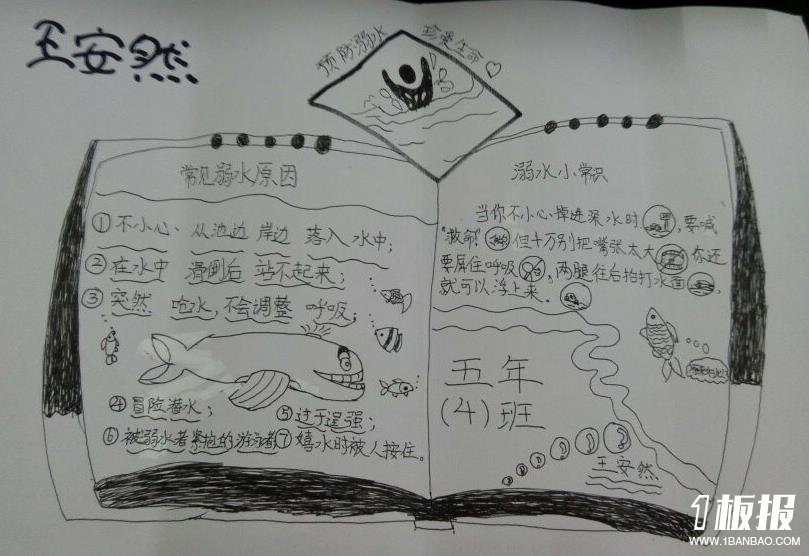 王安然
预防溺水 珍爱生命
常见溺水原因
①不小心、从池边 岸边 落入 水中；
②在水中 滑倒后 站不起来；
③突然 呛水，不会调整 呼吸；
④冒险潜水；
⑤过于逞强；
⑥被溺水者紧抱的游泳者
⑦嬉水时被人按住。
溺水小常识
当你不小心掉进深水时，要喊
"救命"但千万别把嘴张太大 你还
要屏住呼吸，两腿往后拍打水面，
就可以浮上来。
五年
(4)班
王安然
1板报
WWW.1BANBAO.COM